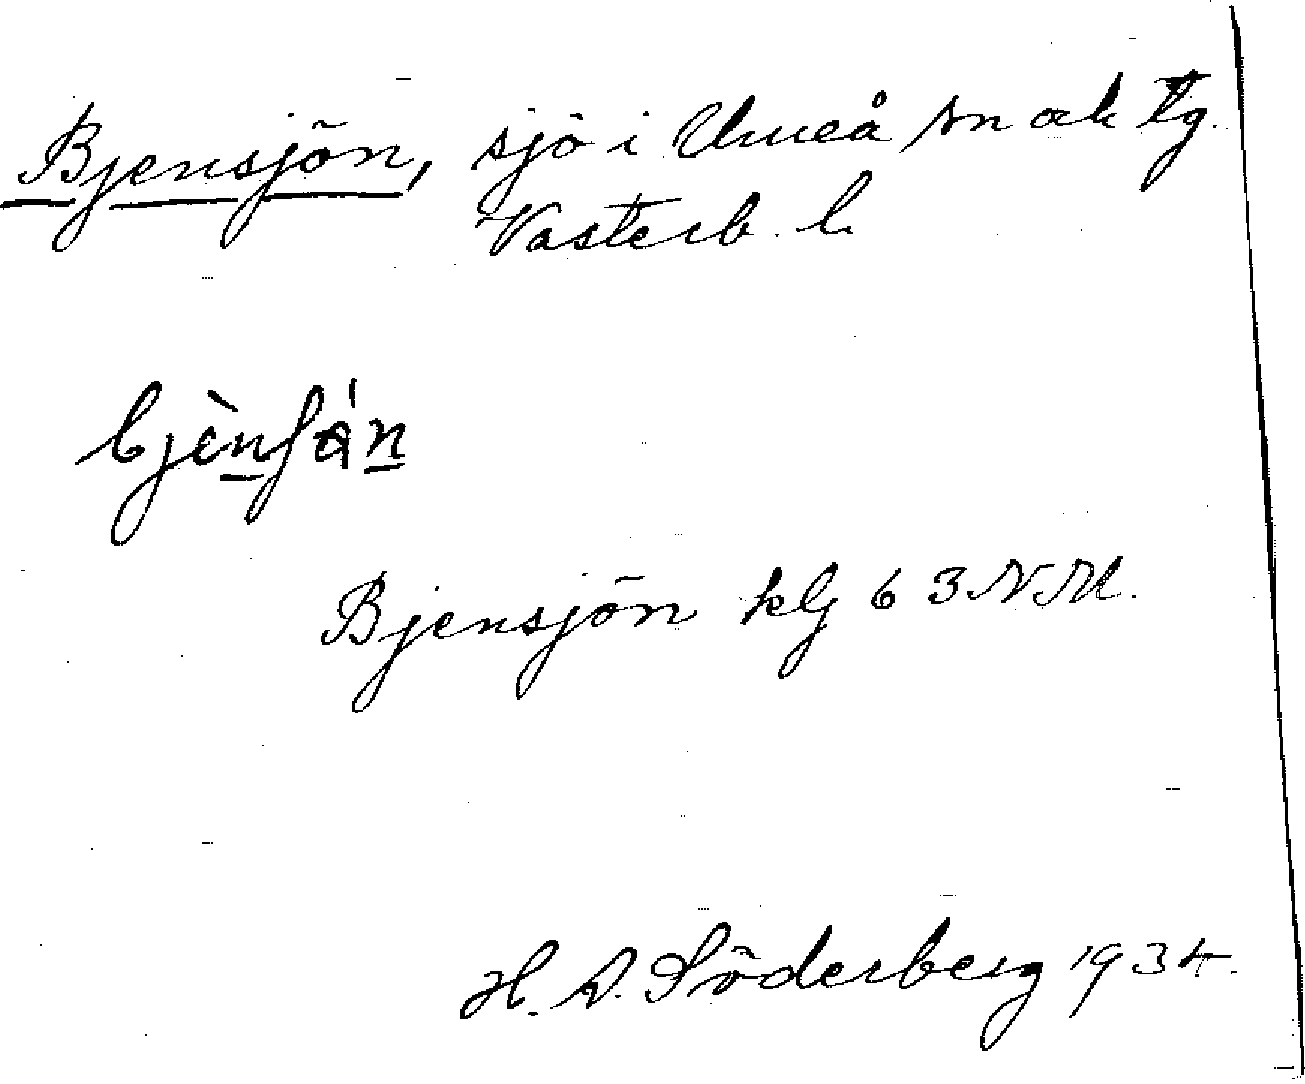 Bjensjön, sjö i Umeå sn och tg.
Västerb. l.
bjènʃán
Bjensjön klg 63 NV
H. D. Söderberg 1934.